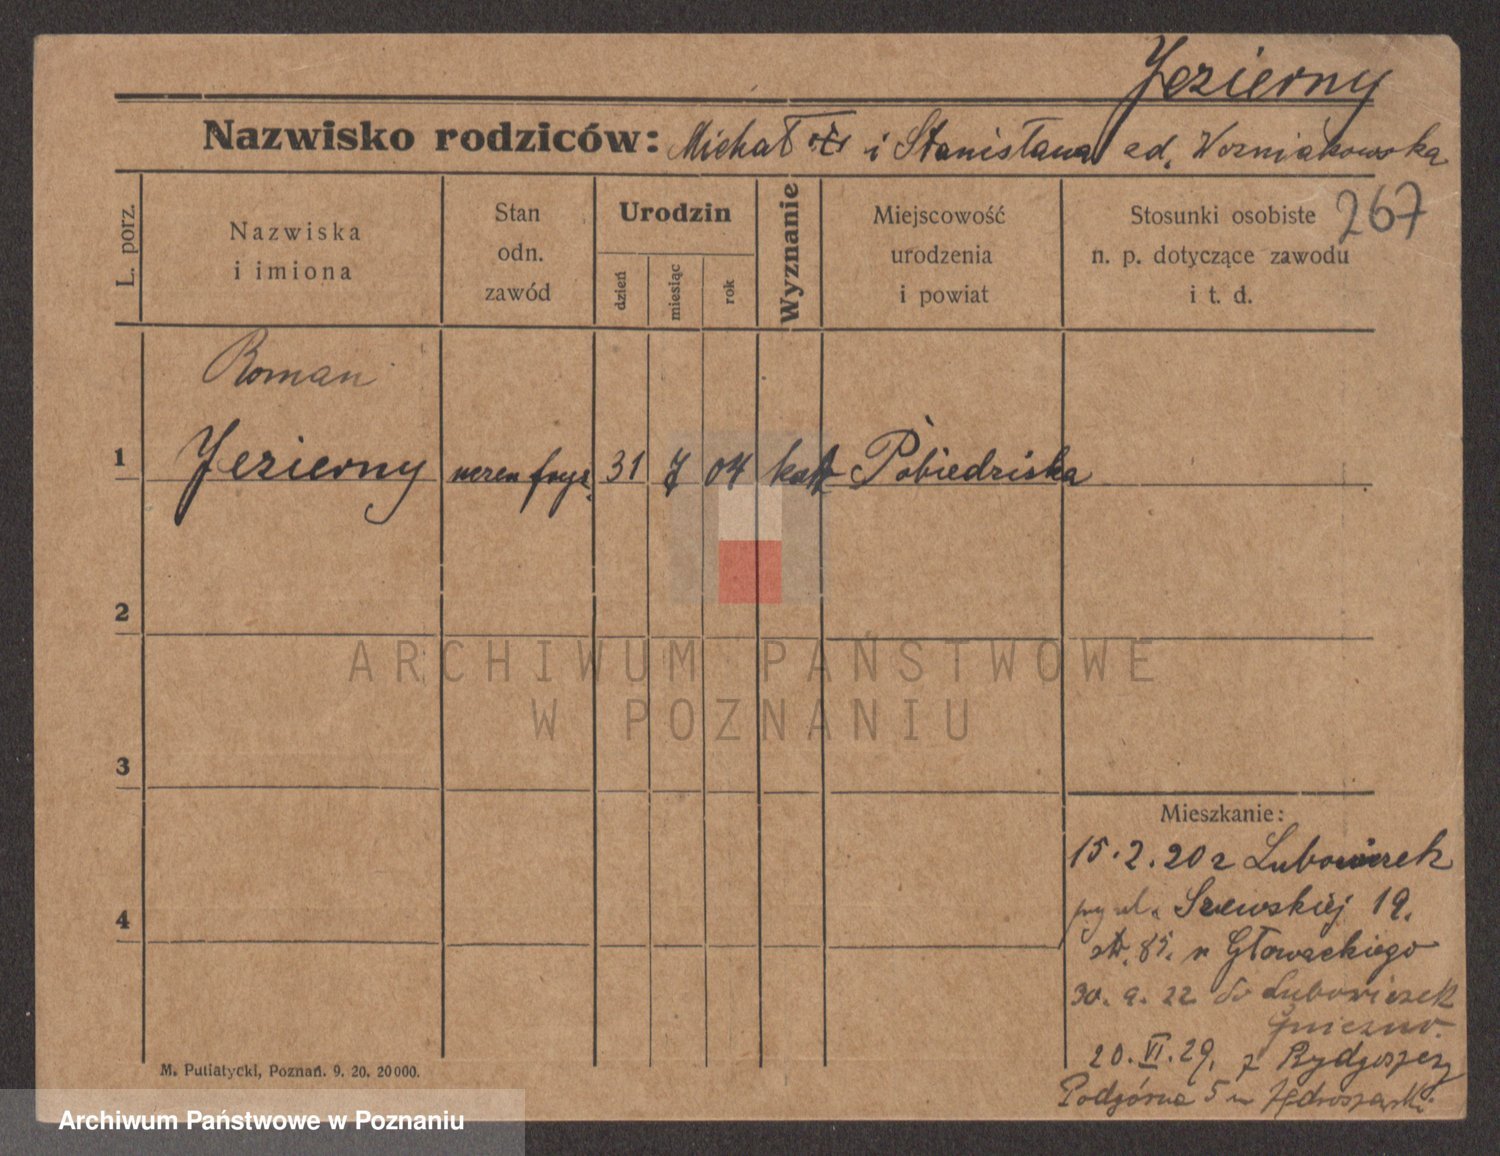 Jezierny
Nazwisko rodziców: Michał i Stanisława Wozniakowska
267
L. porz.
Nazwiska
i imiona
Stan
odn.
zawód
Urodzin
dzień
miesiąc
rok
Wyznanie
Miejscowość
urodzenia
i powiat
Stosunki osobiste
n. p. dotyczące zawodu
i t. d.
Roman
1 Jezierny 31 7 04 kath Pobiedziska
2
3
4
Mieszkanie:
15.2.20 z
ul. Szewskiej 19.
85. Głowackiego
30. 9. 22 do
Gniezno.
20. VI. 29. z Bydgoszczy
Podgórna 5
M. Putiatycki, Poznań. 9. 20. 20000.
ARCHIWUM PAŃSTWOWE
W POZNANIU
Archiwum Państwowe w Poznaniu